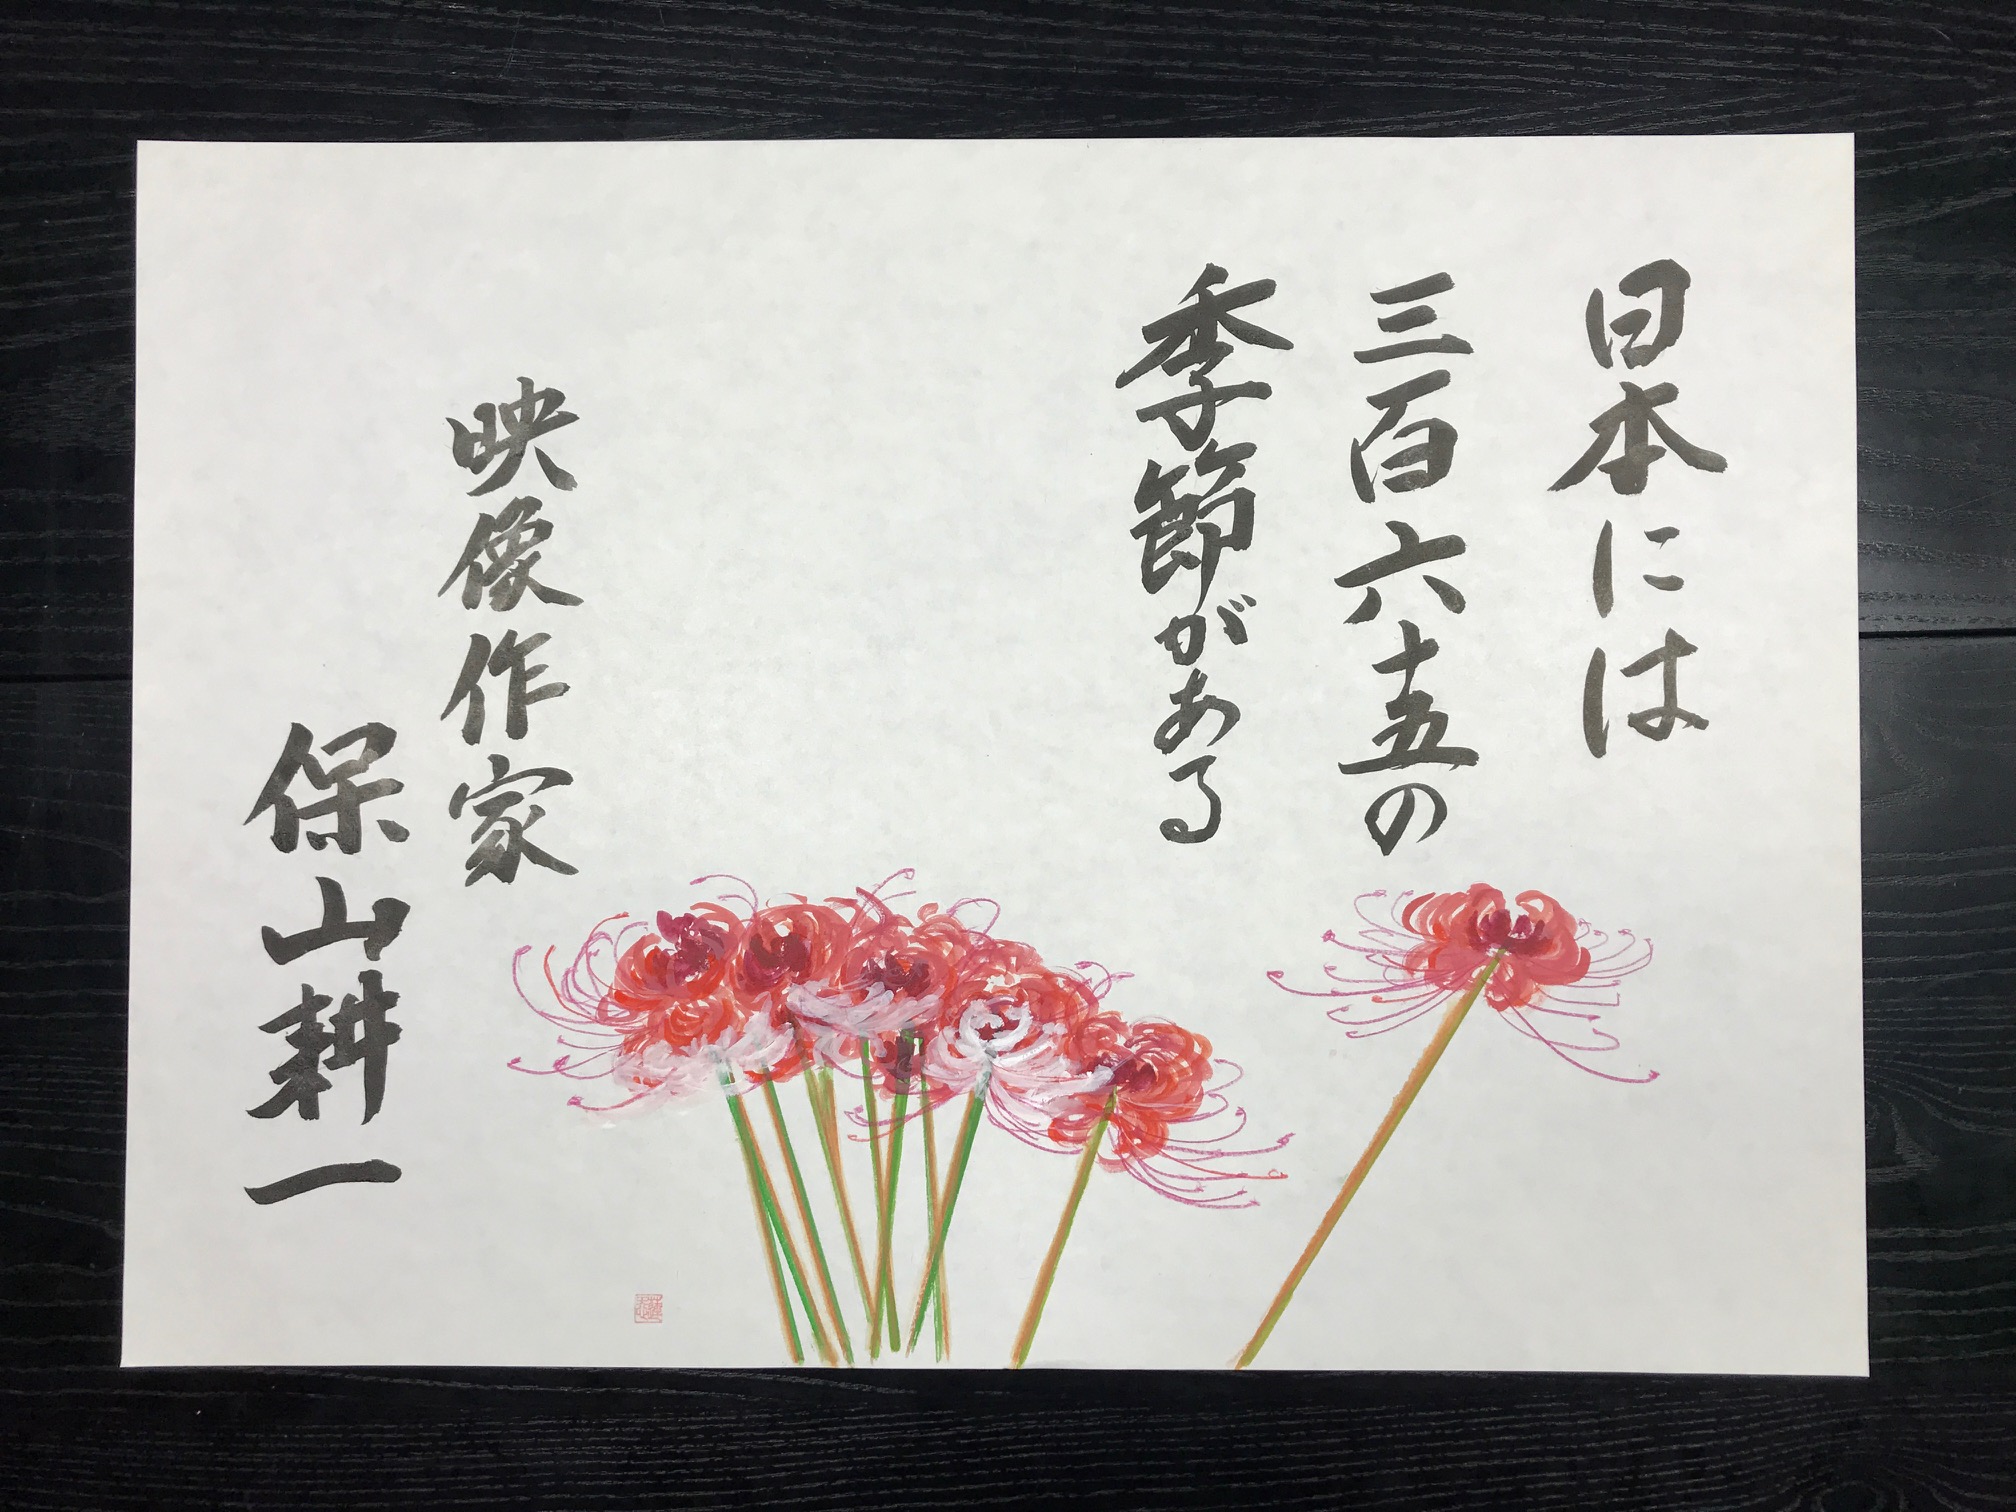 日本には
三百六十五の
季節がある
映像作家
保山耕一